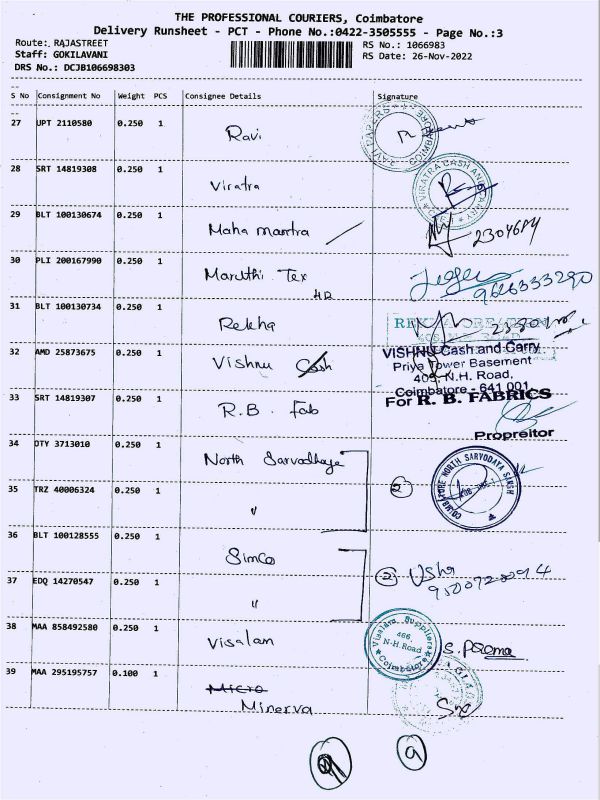 THE PROFESSIONAL COURIERS, Coimbatore
Delivery Runsheet - PCT - Phone No.:0422-3505555 - Page No.:3
Route: RAJASTREET
RS No.: 1066983
Staff: GOKILAVANI
RS Date: 26-Nov-2022
DRS No.: DCJB106698303
S No Consignment No Weight PCS Consignee Details Signature
27 UPT 2110580 0.250 1 Ravi
28 SRT 14819308 0.250 1 Viratra
VIRATRA CASH AND CARRY
29 BLT 100130674 0.250 1 Maha mantra
30 PLI 200167990 0.250 1 Maruthi Tex
9626333290
31 BLT 100130734 0.250 1 Rekha
32 AMD 25873675 0.250 1 Vishnu Cash
VISHNU Cash and Carry
Priya Tower Basement
405, N.H. Road,
Coimbatore - 641 001
33 SRT 14819307 0.250 1 R.B. Fab
For R. B. FABRICS
Propreitor
34 OTY 3713010 0.250 1 North Sarvodhaya
2
COIMBATORE NORTH SARVODAYA SANGH
35 TRZ 40006324 0.250 1 "
36 BLT 100128555 0.250 1 Simco
2 Usha
37 EDQ 14270547 0.250 1 "
38 MAA 858492580 0.250 1 Visalam
Visalam Suppliers
466,
N-H.Road
Coimbatore
39 MAA 295195757 0.100 1 Micro
Minerva